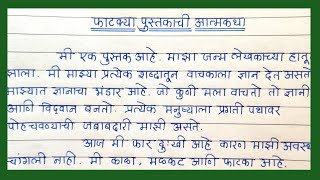 फाटक्या पुस्तकाची आत्मकथा
मी एक पुस्तक आहे. माझा जन्म लेखकाच्या हातून
झाला. मी माझ्या प्रत्येक शब्दातून वाचकाला ज्ञान देत असते
माझ्यात ज्ञानाचा भंडार आहे. जो कुणी मला वाचतो तो ज्ञानी
आणि विद्वान बनतो. प्रत्येक मनुष्याला प्रगती पथावर
पोहचवण्याची जबाबदारी माझी असते.
आज मी फार दुःखी आहे कारण माझी अवस्था
चांगली नाही. मी काळा, मळकट आणि फाटका आहे.